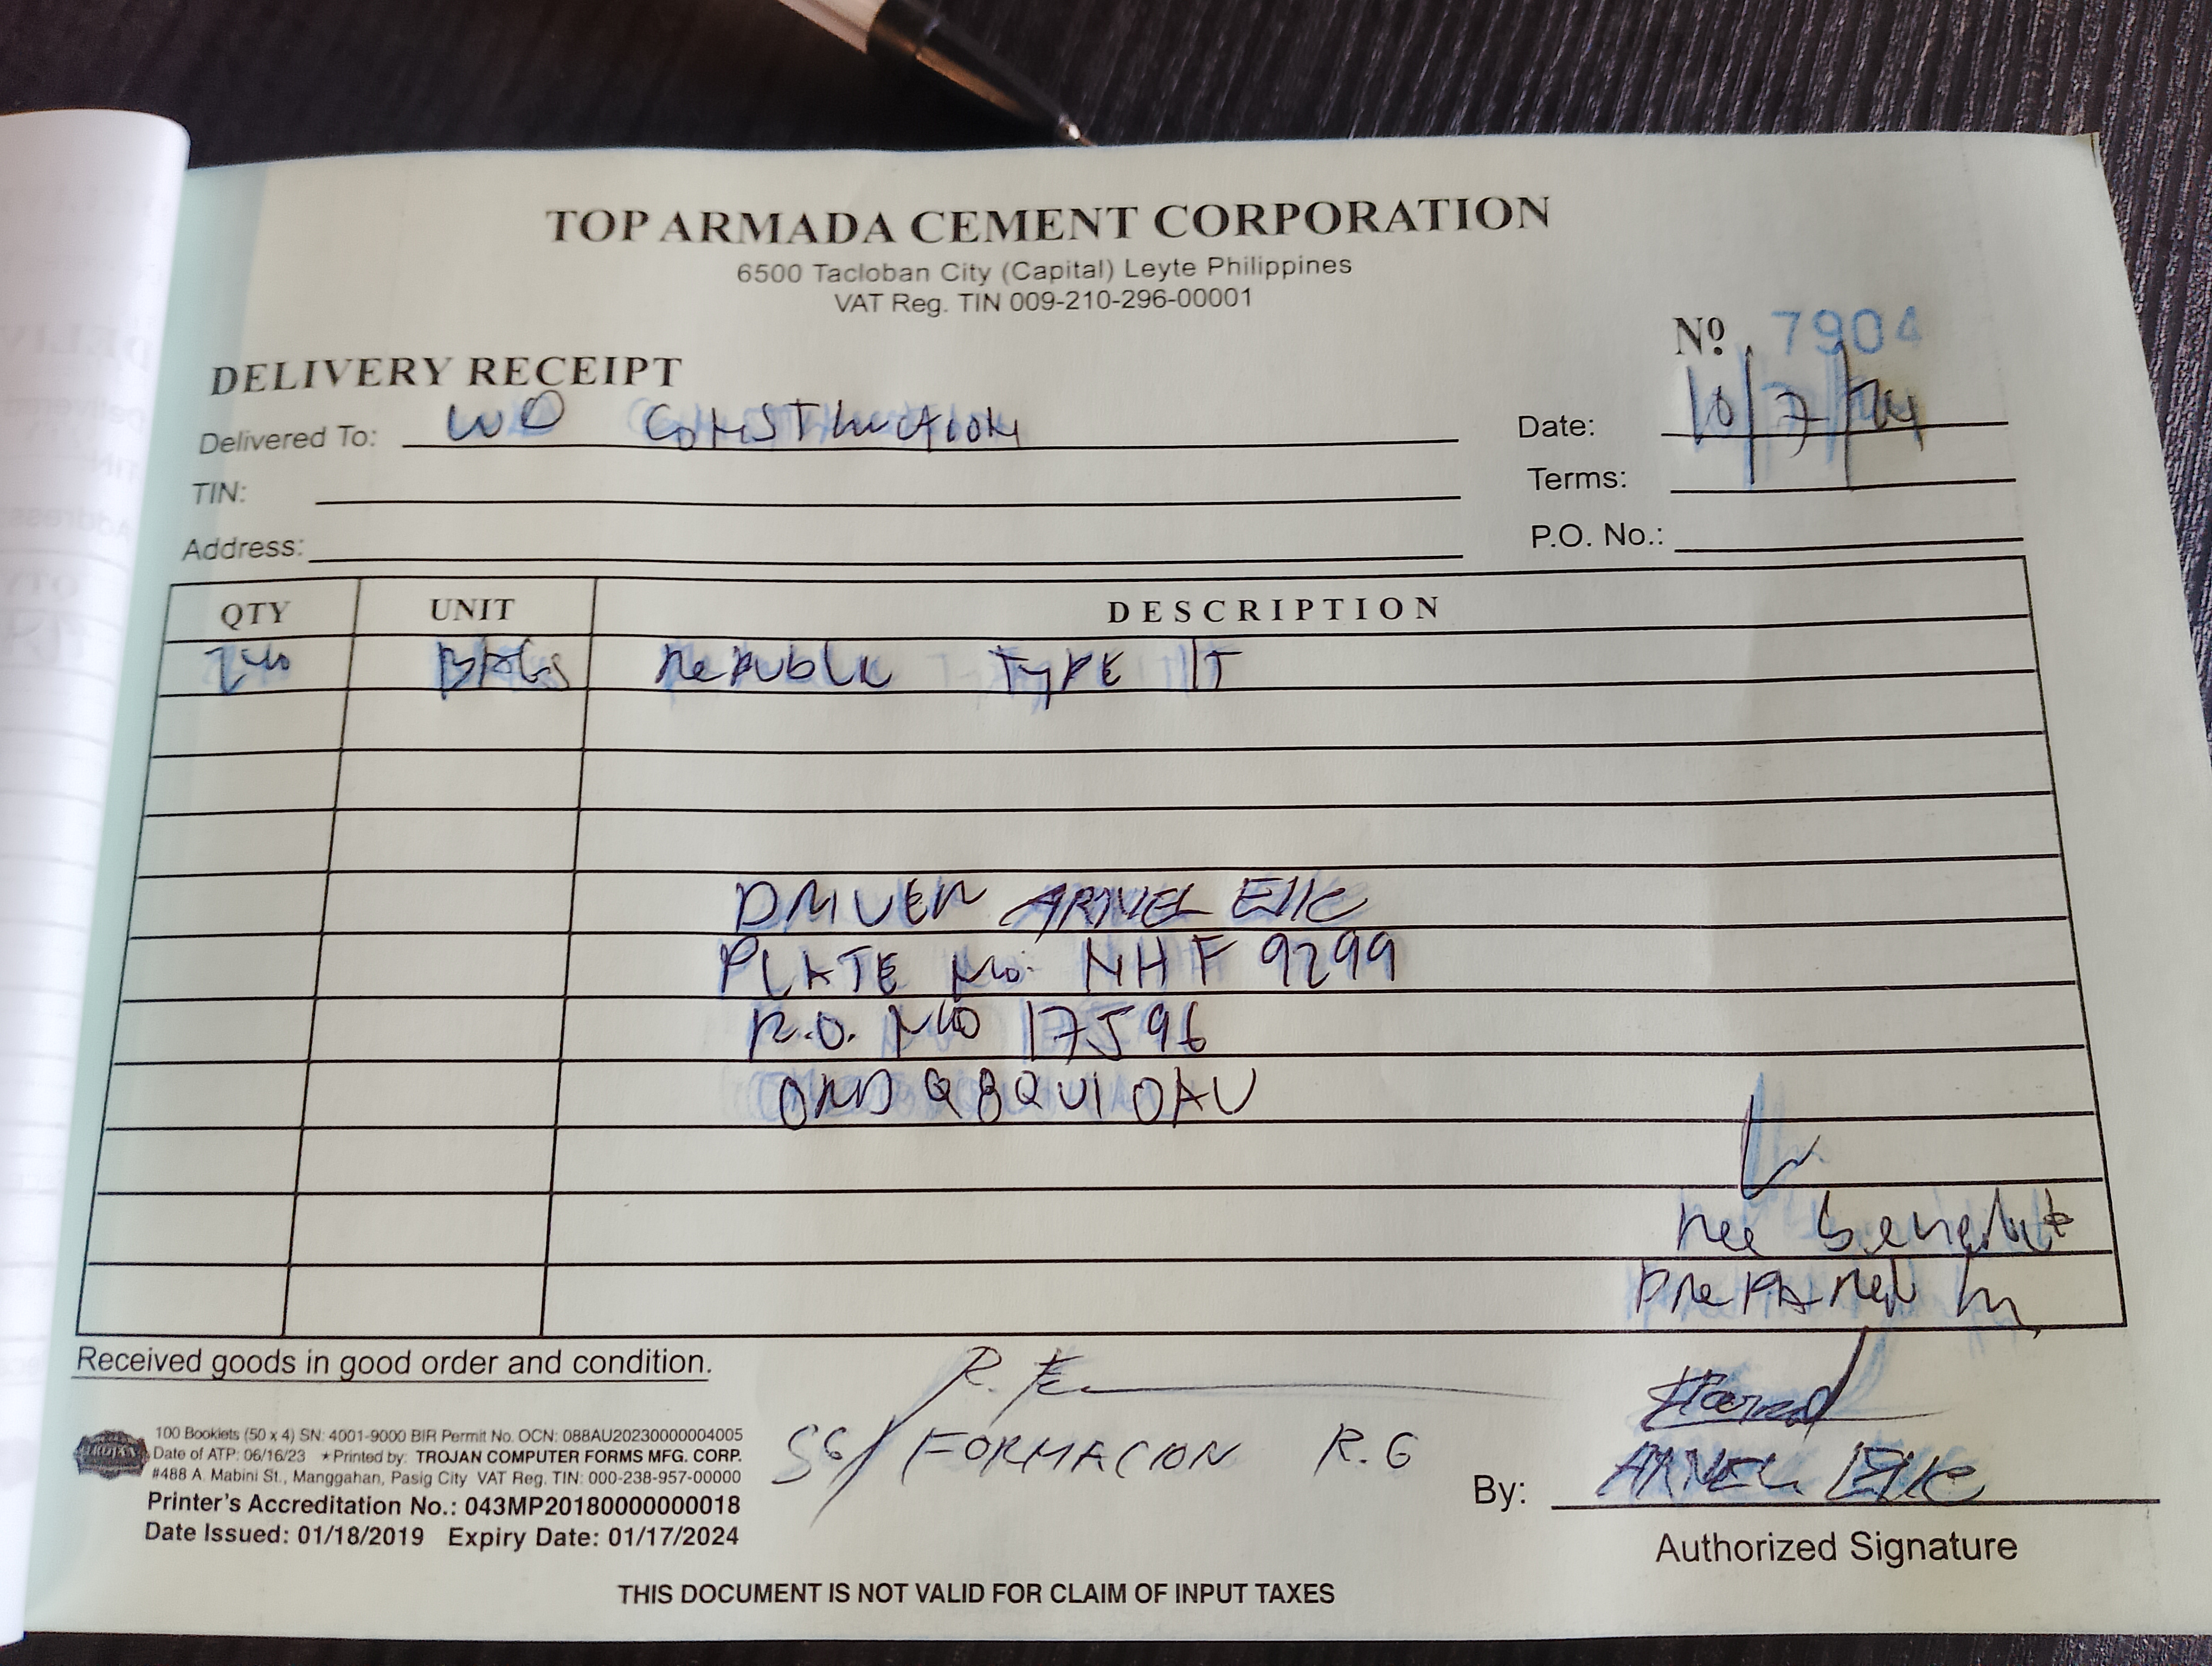 TOP ARMADA CEMENT CORPORATION
6500 Tacloban City (Capital) Leyte Philippines
VAT Reg. TIN 009-210-296-00001
Nº 7904
DELIVERY RECEIPT
Delivered To: WO CONSTRUCTION
Date: 10/7/24
TIN:
Terms:
Address:
P.O. No.:
QTY UNIT DESCRIPTION
240 BAGS Republic TYPE 1T
DRIVER ARNEL
PLATE No: NHF 9299
R.O. NO 17596
Prepared by
Received goods in good order and condition.
100 Booklets (50 x 4) SN: 4001-9000 BIR Permit No. OCN: 088AU20230000004005
Date of ATP: 06/16/23 ★Printed by: TROJAN COMPUTER FORMS MFG. CORP.
#488 A. Mabini St., Manggahan, Pasig City VAT Reg. TIN: 000-238-957-00000
Printer's Accreditation No.: 043MP20180000000018
Date Issued: 01/18/2019 Expiry Date: 01/17/2024
TROJAN
SG/ FORMACION R.G
By: ARNEL
Authorized Signature
THIS DOCUMENT IS NOT VALID FOR CLAIM OF INPUT TAXES